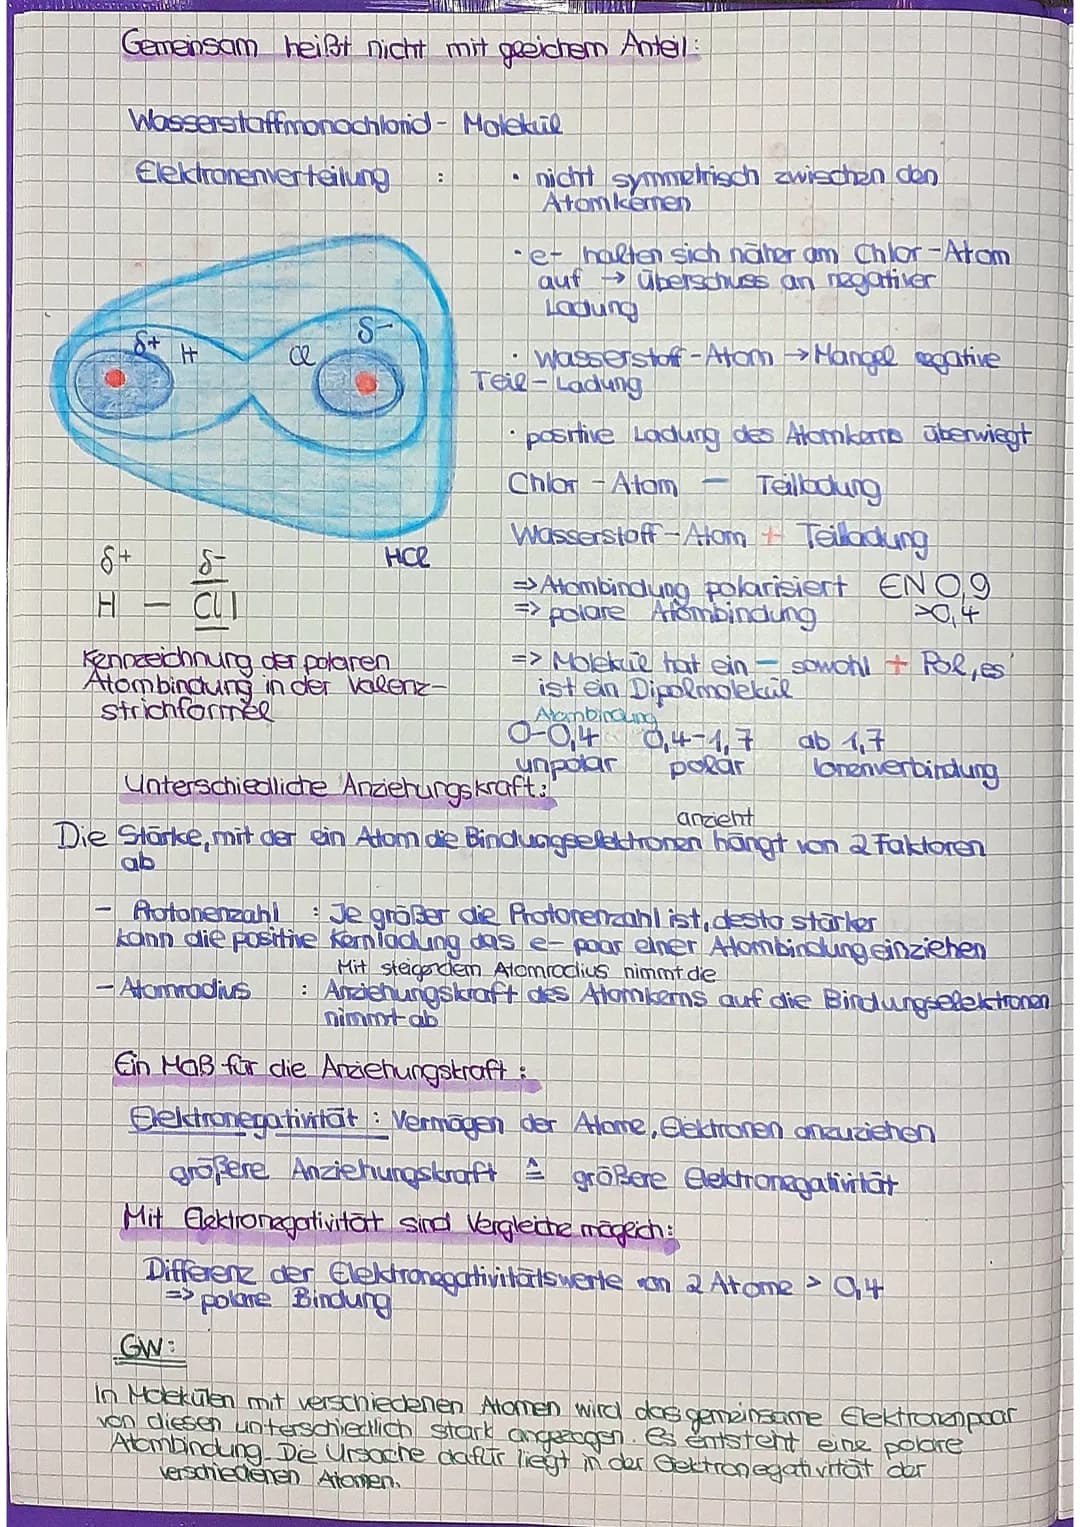 Gemeinsam heißt nicht mit gleichem Anteil:
Wasserstoffmonochlorid - Molekül
Elektronenverteilung :
• nicht symmetrisch zwischen den
Atomkernen
• e- halten sich näher am Chlor-Atom
auf → überschuss an negativer
Ladung
• Wasserstoff-Atom → Mangel negative
Teil-Ladung
• positive Ladung des Atomkerns überwiegt
Chlor-Atom - Teilladung
Wasserstoff-Atom + Teilladung
⇒ Atombindung polarisiert EN 0,9
⇒ polare Atombindung >0,4
⇒ Molekül hat ein - sowohl + Pol, es
ist ein Dipolmolekül
δ+ H Cl δ-
HCl
δ+ δ-
H - Cl|
Kennzeichnung der polaren
Atombindung in der Valenz-
strichformel
Atombindung
0-0,4 0,4-1,7 ab 1,7
unpolar polar Ionenverbindung
Unterschiedliche Anziehungskraft:
anzieht
Die Stärke, mit der ein Atom die Bindungselektronen hängt von 2 Faktoren
ab
- Protonenzahl : Je größer die Protonenzahl ist, desto stärker
kann die positive Kernladung das e- paar einer Atombindung einziehen
Mit steigendem Atomradius nimmt die
- Atomradius : Anziehungskraft des Atomkerns auf die Bindungselektronen
nimmt ab
Ein Maß für die Anziehungskraft:
Elektronegativität : Vermögen der Atome, Elektronen anzuziehen
größere Anziehungskraft ≙ größere Elektronegativität
Mit Elektronegativität sind Vergleiche möglich:
Differenz der Elektronegativitätswerte von 2 Atome > 0,4
⇒ polare Bindung
GW:
In Molekülen mit verschiedenen Atomen wird das gemeinsame Elektronenpaar
von diesen unterschiedlich stark angezogen. Es entsteht eine polare
Atombindung. Die Ursache dafür liegt in der Elektronegativität der
verschiedenen Atomen.